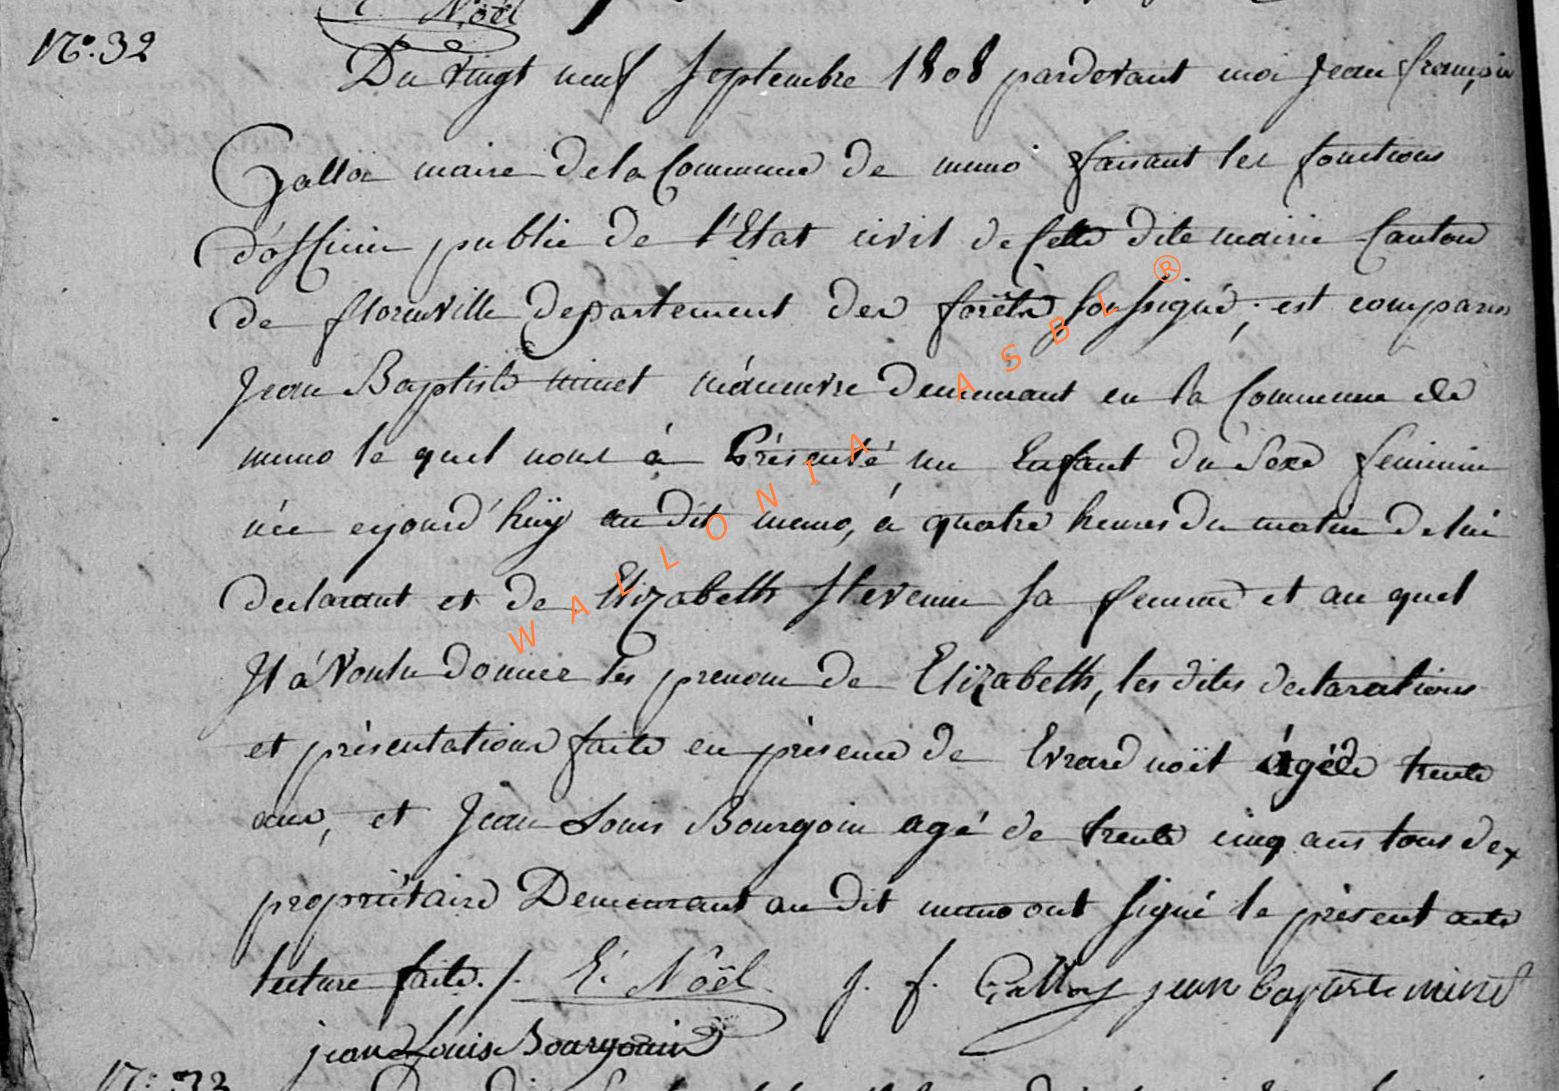 Noël
N°. 32
Du vingt neuf Septembre 1808 pardevant moi Jean françois
Galloi maire de la Commune de muno faisant les fonctions
d'officier public de l'Etat civil de Cette dite mairie Canton
de florenville departement des forêts soussigné, est comparu
Jean Baptiste minet manœuvre demeurant en la Commune de
muno le quel nous à Présenté un Enfant du Sexe feminin
née ejourd'hüy au dit muno, à quatre heures du matin de lui
declarant et de Elizabeth Stevenin sa femme et au quel
Il à Voulu donner les prenom de Elizabeth, les dites declarations
et présentations faite en présence de Evrard noël Agé de trente
ans, et Jean Louis Bourgoin agé de trente cinq ans tous dex
propriétaire Demeurant au dit muno ont signé le présent acte
lecture faite./. E. Noël J. f. Galloy jean baptiste minet
jean Louis Bourgouin
N°. 33
WALLONIA ASBL ®